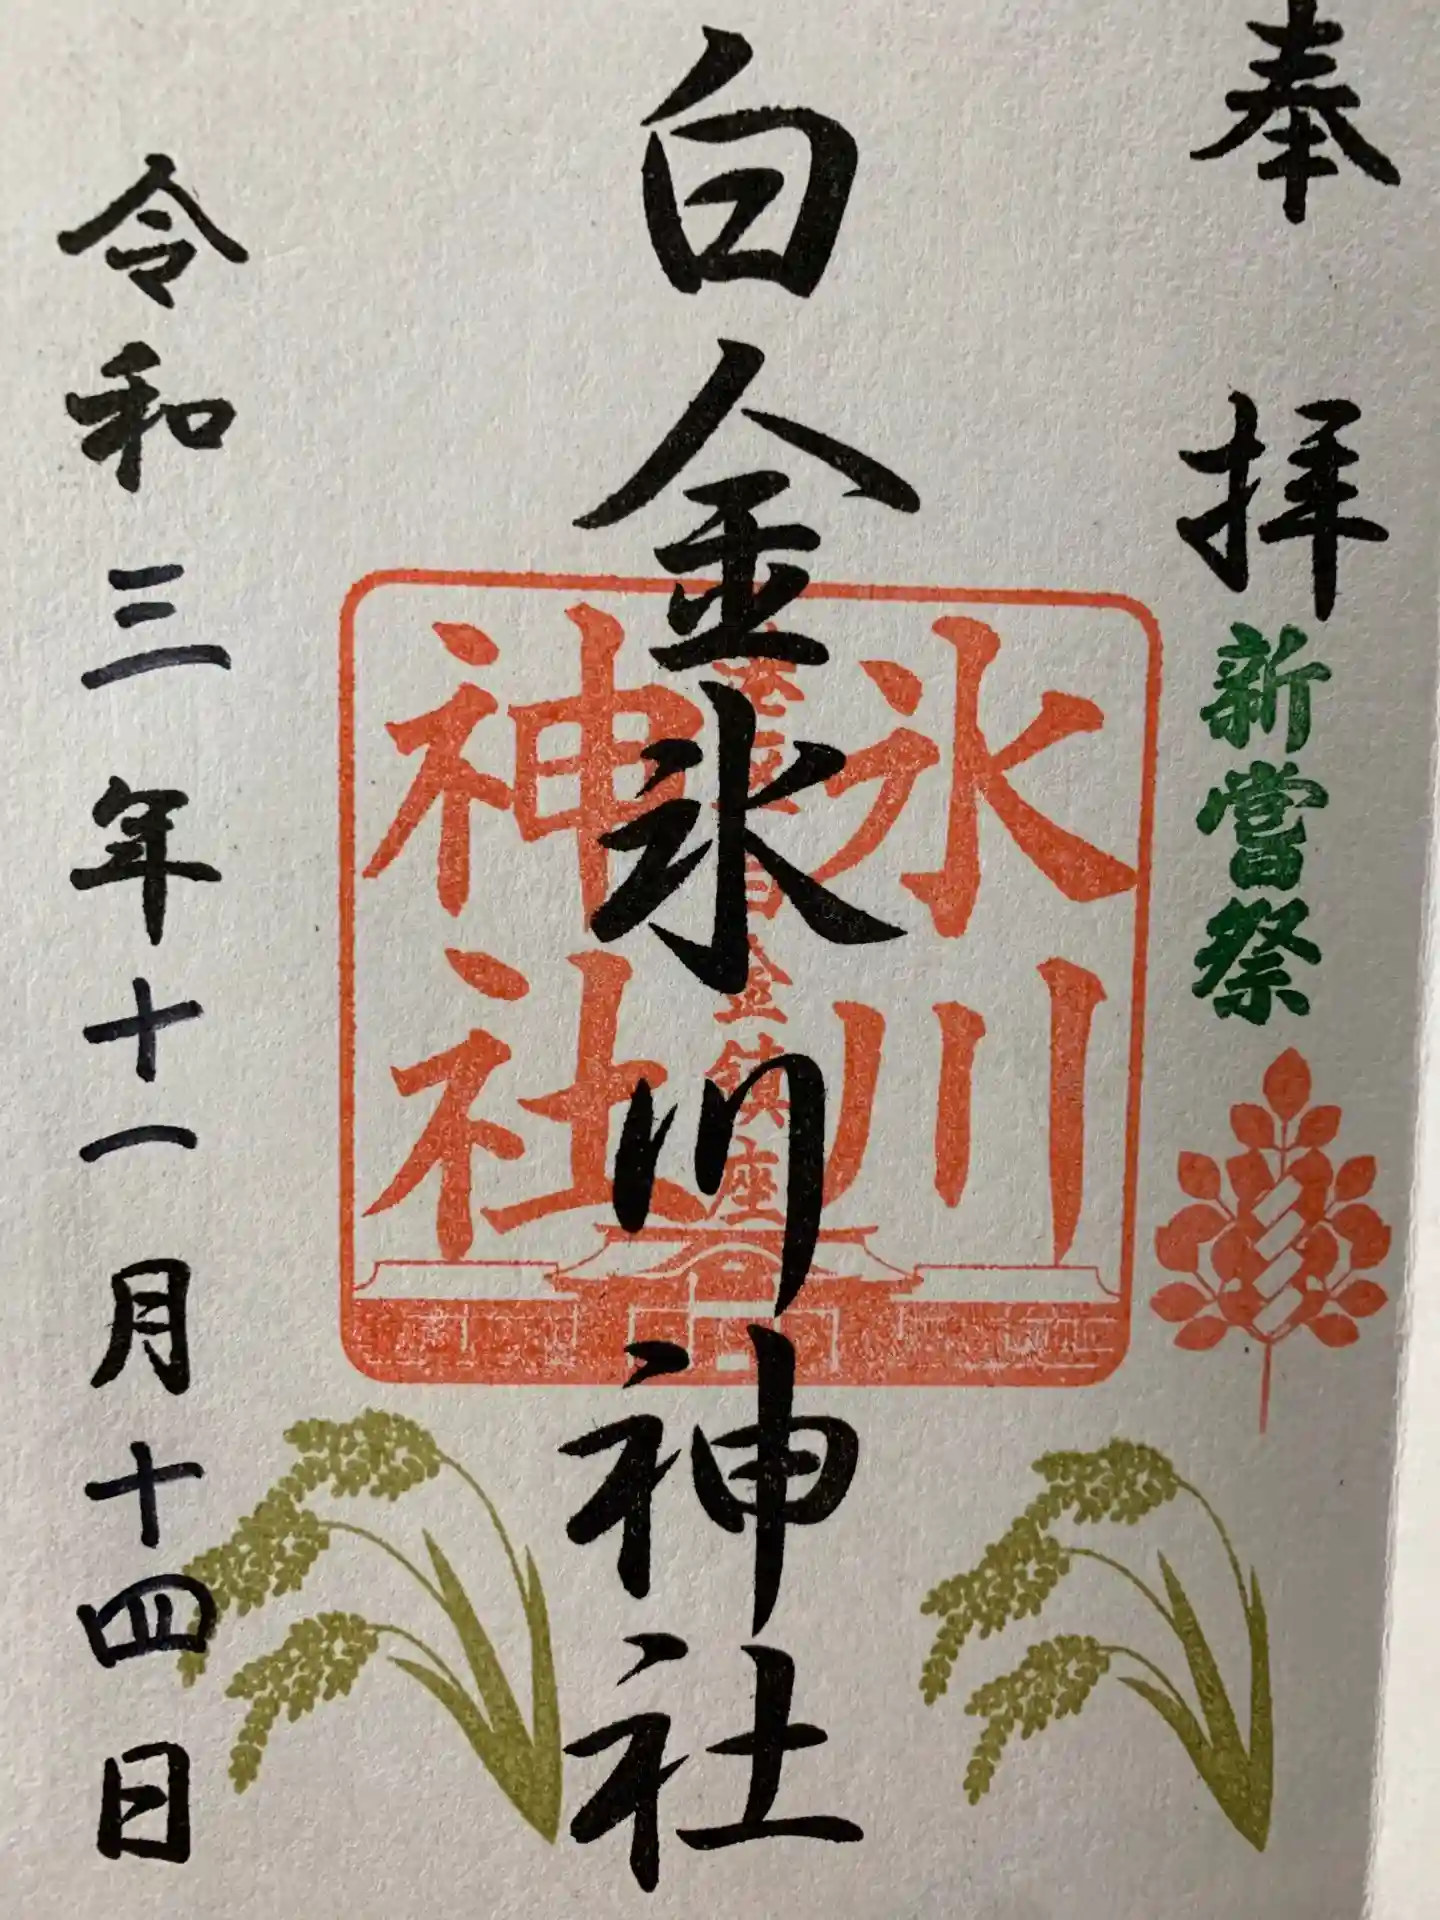 奉拝
新嘗祭
白金氷川神社
氷川
神社
白金鎮座
令和三年十一月十四日